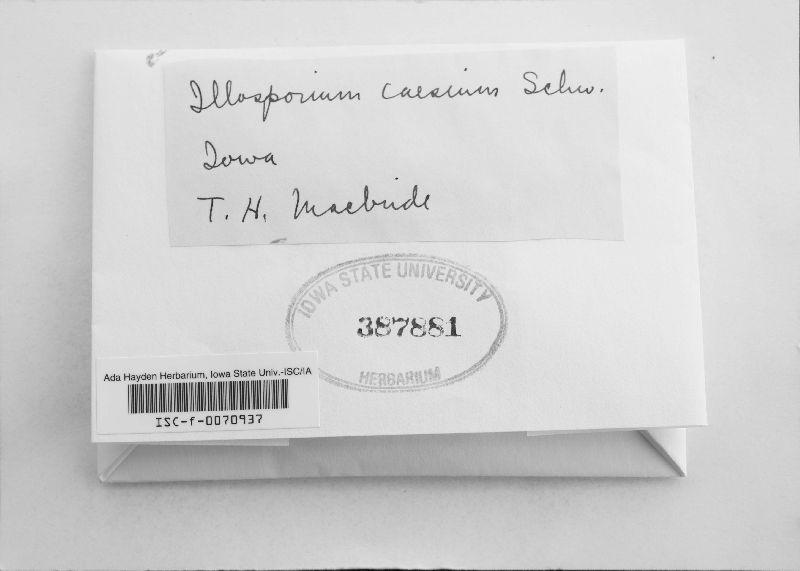 Illosporium caesium Schw.
Iowa
T. H. Macbride
IOWA STATE UNIVERSITY
387881
HERBARIUM
Ada Hayden Herbarium, Iowa State Univ.-ISC/IA
ISC-f-0070937